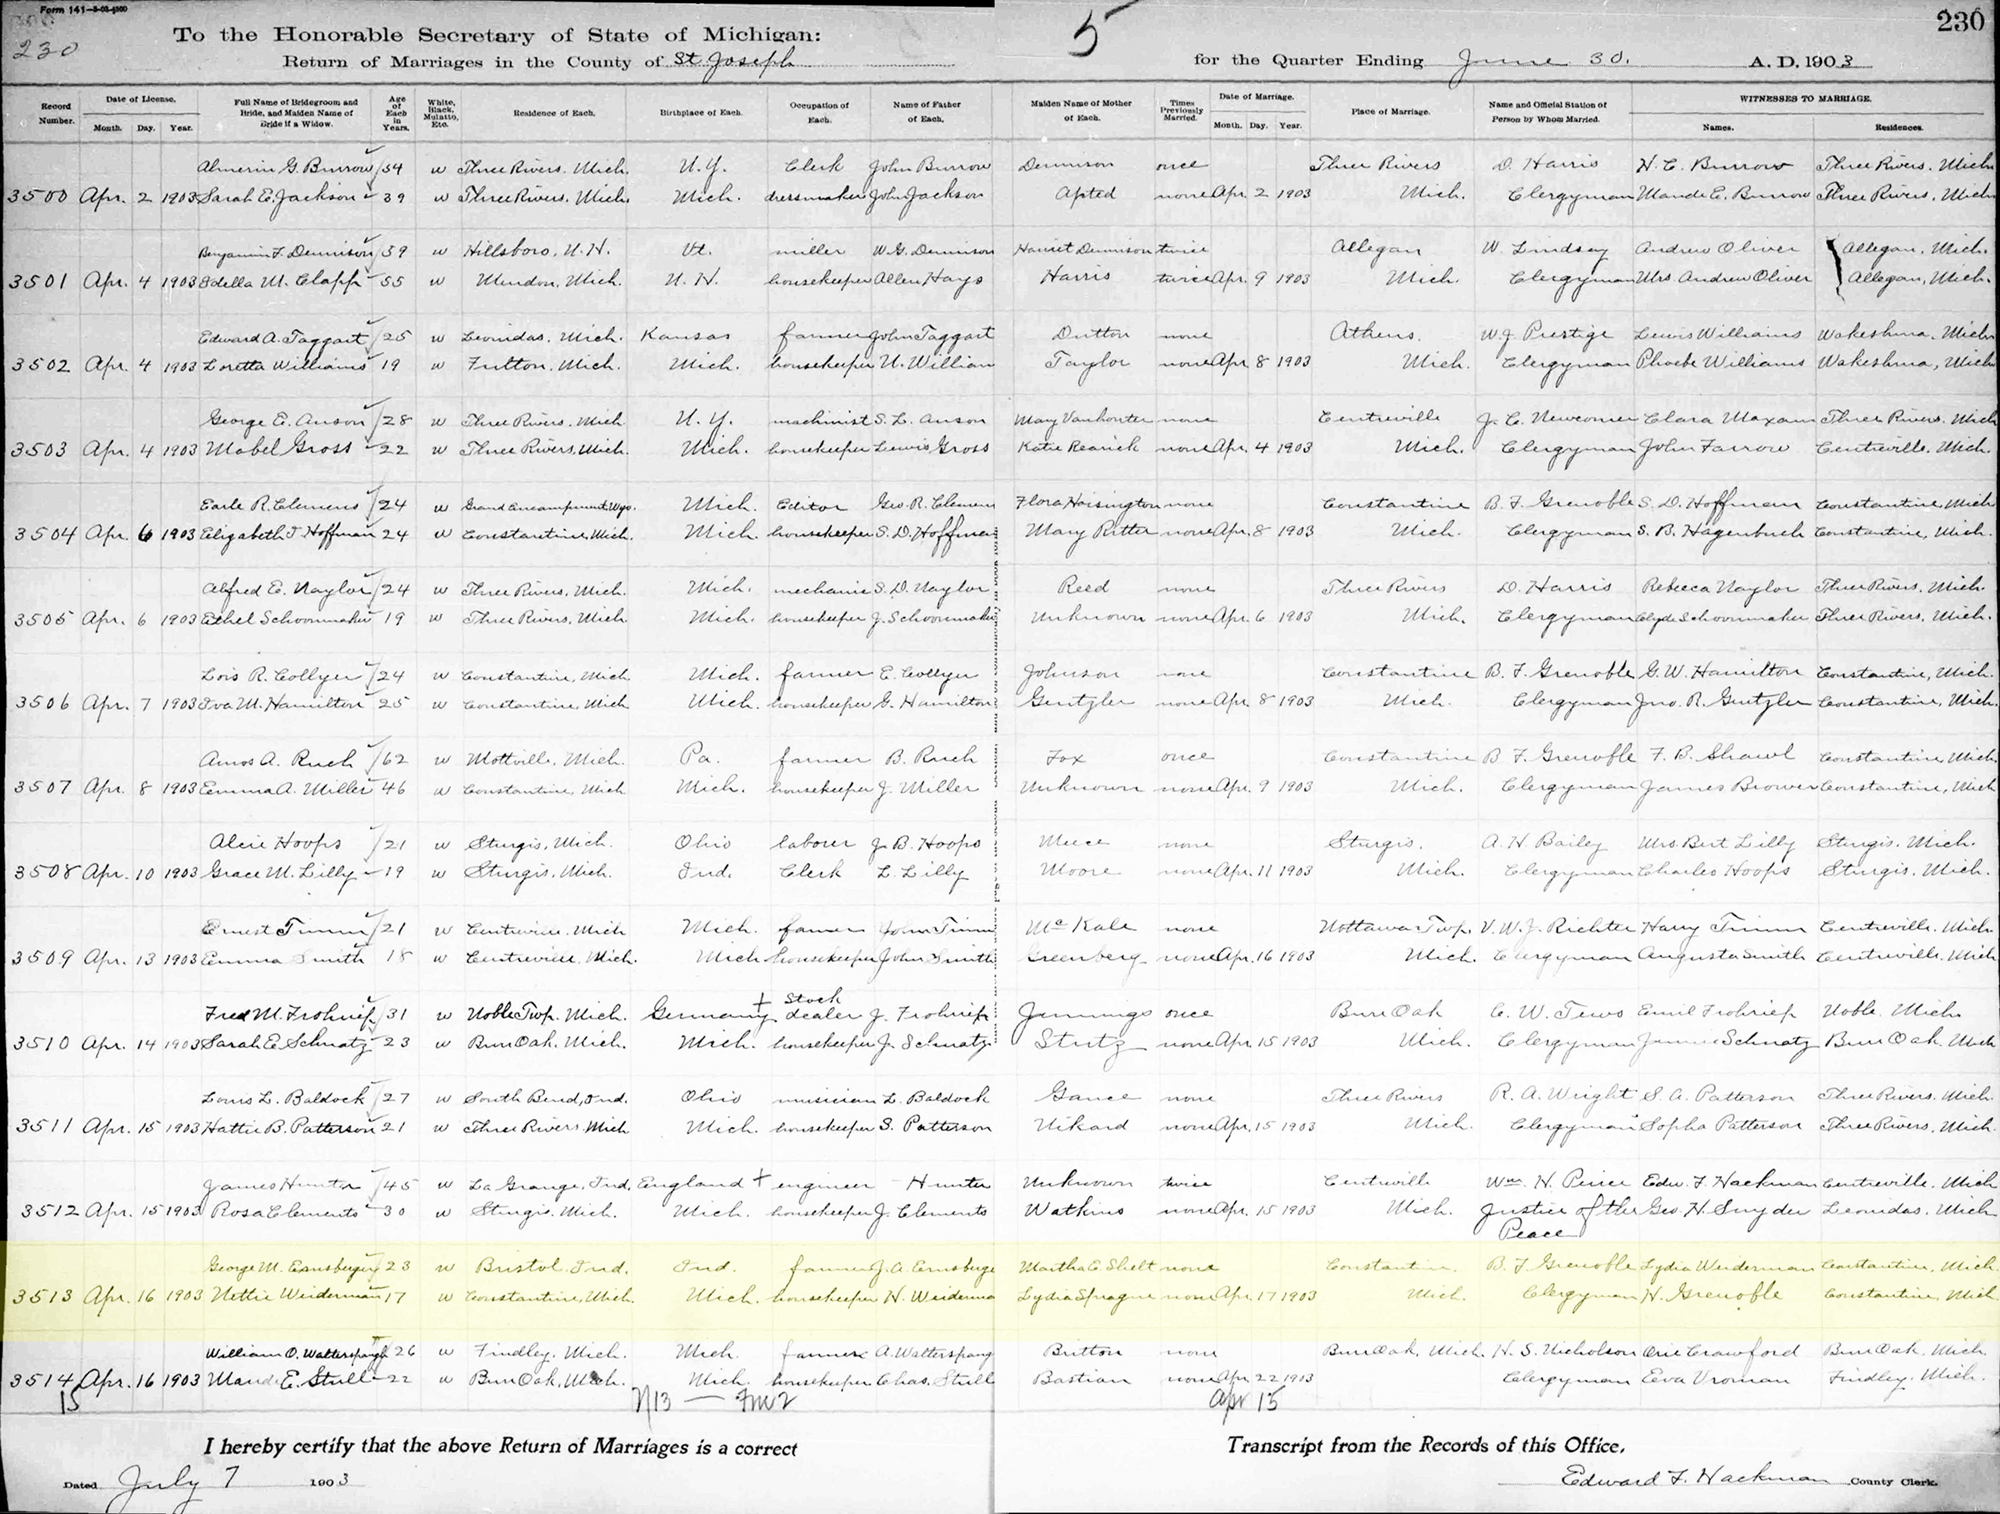 Form 141-5-03-
230
230
5
To the Honorable Secretary of State of Michigan:
Return of Marriages in the County of St Joseph for the Quarter Ending June 30. A. D. 1903
Record Number. Date of License. Month. Day. Year. Full Name of Bridegroom and Bride, and Maiden Name of Bride if a Widow. Age of Each in Years. White, Black, Mulatto, Etc. Residence of Each. Birthplace of Each. Occupation of Each. Name of Father of Each. Maiden Name of Mother of Each. Times Previously Married. Date of Marriage. Month. Day. Year. Place of Marriage. Name and Official Station of Person by Whom Married. WITNESSES TO MARRIAGE. Names. Residences.
Almerin G. Burrow 54 w Three Rivers. Mich. N.Y. Clerk John Burrow Dennison once Three Rivers D. Harris H. C. Burrow Three Rivers. Mich
3500 Apr. 2 1903 Sarah E. Jackson 39 w Three Rivers. Mich. Mich. dressmaker John Jackson Apted none Apr. 2 1903 Mich. Clergyman Maude E. Burrow Three Rivers. Mich
Benjamin F. Dennison 59 w Hillsboro, N.H. Vt. miller W. G. Dennison Harriet Dennison twice Allegan W. Lindsey Andrew Oliver Allegan, Mich.
3501 Apr. 4 1903 Idella M. Clapp 55 w Mendon, Mich. N.H. housekeeper Allen Hays Harris twice Apr. 9 1903 Mich. Clergyman Mrs Andrew Oliver Allegan, Mich.
Edward A. Taggart 25 w Leonidas, Mich. Kansas farmer John Taggart Dutton none Athens. W. J. Prestige Lewis Williams Wakeshma, Mich
3502 Apr. 4 1903 Loretta Williams 19 w Fulton. Mich. Mich. housekeeper N. William Taylor none Apr. 8 1903 Mich. Clergyman Phoebe Williams Wakeshma, Mich
George E. Anson 28 w Three Rivers. Mich N.Y. machinist S. L. Anson Mary Vanhouter none Centreville J. C. Newcomer Clara Maxam Three Rivers. Mich
3503 Apr. 4 1903 Mabel Gross 22 w Three Rivers, Mich. Mich. housekeeper Lewis Gross Katie Rearick none Apr. 4 1903 Mich. Clergyman John Farrow Centreville. Mich.
Earle R. Clemens 24 w Grand Encampment Wyo. Mich. Editor Geo. R. Clemens Flora Hoisington none Constantine B. F. Grenoble S. D. Hoffman Constantine, Mich
3504 Apr. 6 1903 Elizabeth J. Hoffman 24 w Constantine, Mich. Mich. housekeeper S. D. Hoffman Mary Ritter none Apr. 8 1903 Mich. Clergyman S. B. Hagenbuch Constantine, Mich.
Alfred E. Naylor 24 w Three Rivers, Mich. Mich. mechanic S. D. Naylor Reed none Three Rivers D. Harris Rebecca Naylor Three Rivers, Mich.
3505 Apr. 6 1903 Ethel Schoonmaker 19 w Three Rivers, Mich. Mich. housekeeper J. Schoonmaker Unknown none Apr. 6 1903 Mich. Clergyman Clyde Schoonmaker Three Rivers, Mich.
Lois R. Collyer 24 w Constantine, Mich Mich. farmer E. Collyer Johnson none Constantine B. F. Grenoble G. W. Hamilton Constantine, Mich.
3506 Apr. 7 1903 Iva M. Hamilton 25 w Constantine, Mich Mich. housekeeper G. Hamilton Gentzler none Apr. 8 1903 Mich. Clergyman Jno. R. Gentzler Constantine, Mich.
Amos A. Ruch 62 w Mottville, Mich. Pa. farmer B. Ruch Fox once Constantine B. F. Grenoble F. B. Shawl Constantine, Mich
3507 Apr. 8 1903 Emma A. Miller 46 w Constantine, Mich Mich. housekeeper J. Miller Unknown none Apr. 9 1903 Mich. Clergyman James Brower Constantine, Mich
Alcie Hoops 21 w Sturgis, Mich. Ohio laborer J. B. Hoops none Sturgis. A. H. Bailey Mrs. Bert Lilly Sturgis. Mich.
3508 Apr. 10 1903 Grace M. Lilly 19 w Sturgis, Mich. Ind. Clerk L. Lilly Moore none Apr. 11 1903 Mich. Clergyman Charles Hoops Sturgis. Mich.
Ernest Timm 21 w Centreville. Mich Mich. farmer John Timm McKale none Nottawa Twp. V. W. J. Richter Harry Timm Centreville. Mich
3509 Apr. 13 1903 Emma Smith 18 w Centreville, Mich. Mich housekeeper John Smith Greenberg none Apr. 16 1903 Mich. Clergyman Augusta Smith Centreville. Mich
Fred M. Frohriep 31 w Noble Twp. Mich. Germany + Stock dealer J. Frohriep Jennings once Burr Oak C. W. Tews Emil Frohriep Noble. Mich.
3510 Apr. 14 1903 Sarah E. Schnatz 23 w Burr Oak. Mich. Mich. housekeeper J. Schnatz Stutz none Apr. 15 1903 Mich. Clergyman Schnatz Burr Oak. Mich
Louis L. Baldock 27 w South Bend, Ind. Ohio musician L. Baldock Gance none Three Rivers R. A. Wright S. A. Patterson Three Rivers. Mich.
3511 Apr. 15 1903 Hattie B. Patterson 21 w Three Rivers Mich Mich. housekeeper S. Patterson Nikard none Apr. 15 1903 Mich. Clergyman Sopha Patterson Three Rivers, Mich.
James Hunter 45 w La Grange, Ind. England + engineer - Hunter Unknown twice Centreville Wm. H. Peirce Edw. F. Hackman Centreville. Mich
3512 Apr. 15 1903 Rosa Clements 30 w Sturgis. Mich. Mich. housekeeper J. Clements Watkins none Apr. 15 1903 Mich. Justice of the Peace Geo. H. Snyder Leonidas. Mich
George M. Ernsberger 23 w Bristol. Ind. Ind. farmer J. A. Ernsberge Martha C. Shelt none Constantine. B. F. Grenoble Lydia Weiderman Constantine, Mich.
3513 Apr. 16 1903 Nettie Weiderman 17 w Constantine, Mich. Mich. housekeeper H. Weiderma Lydia Sprague none Apr. 17 1903 Mich. Clergyman H. Grenoble Constantine, Mich
William O. Watterspaugh 26 w Findley. Mich. Mich. farmer A. Watterspaug Britton none Burr Oak, Mich. H. S. Nicholson Orie Crawford Burr Oak, Mich.
3514 Apr. 16 1903 Maude E. Stull 22 w Burr Oak, Mich. Mich. housekeeper Chas. Stull Bastian none Apr 22 1903 Clergyman Eva Vroman Findley. Mich.
15 Apr 15
I hereby certify that the above Return of Marriages is a correct Transcript from the Records of this Office.
Dated July 7 1903 Edward F. Hackman County Clerk.